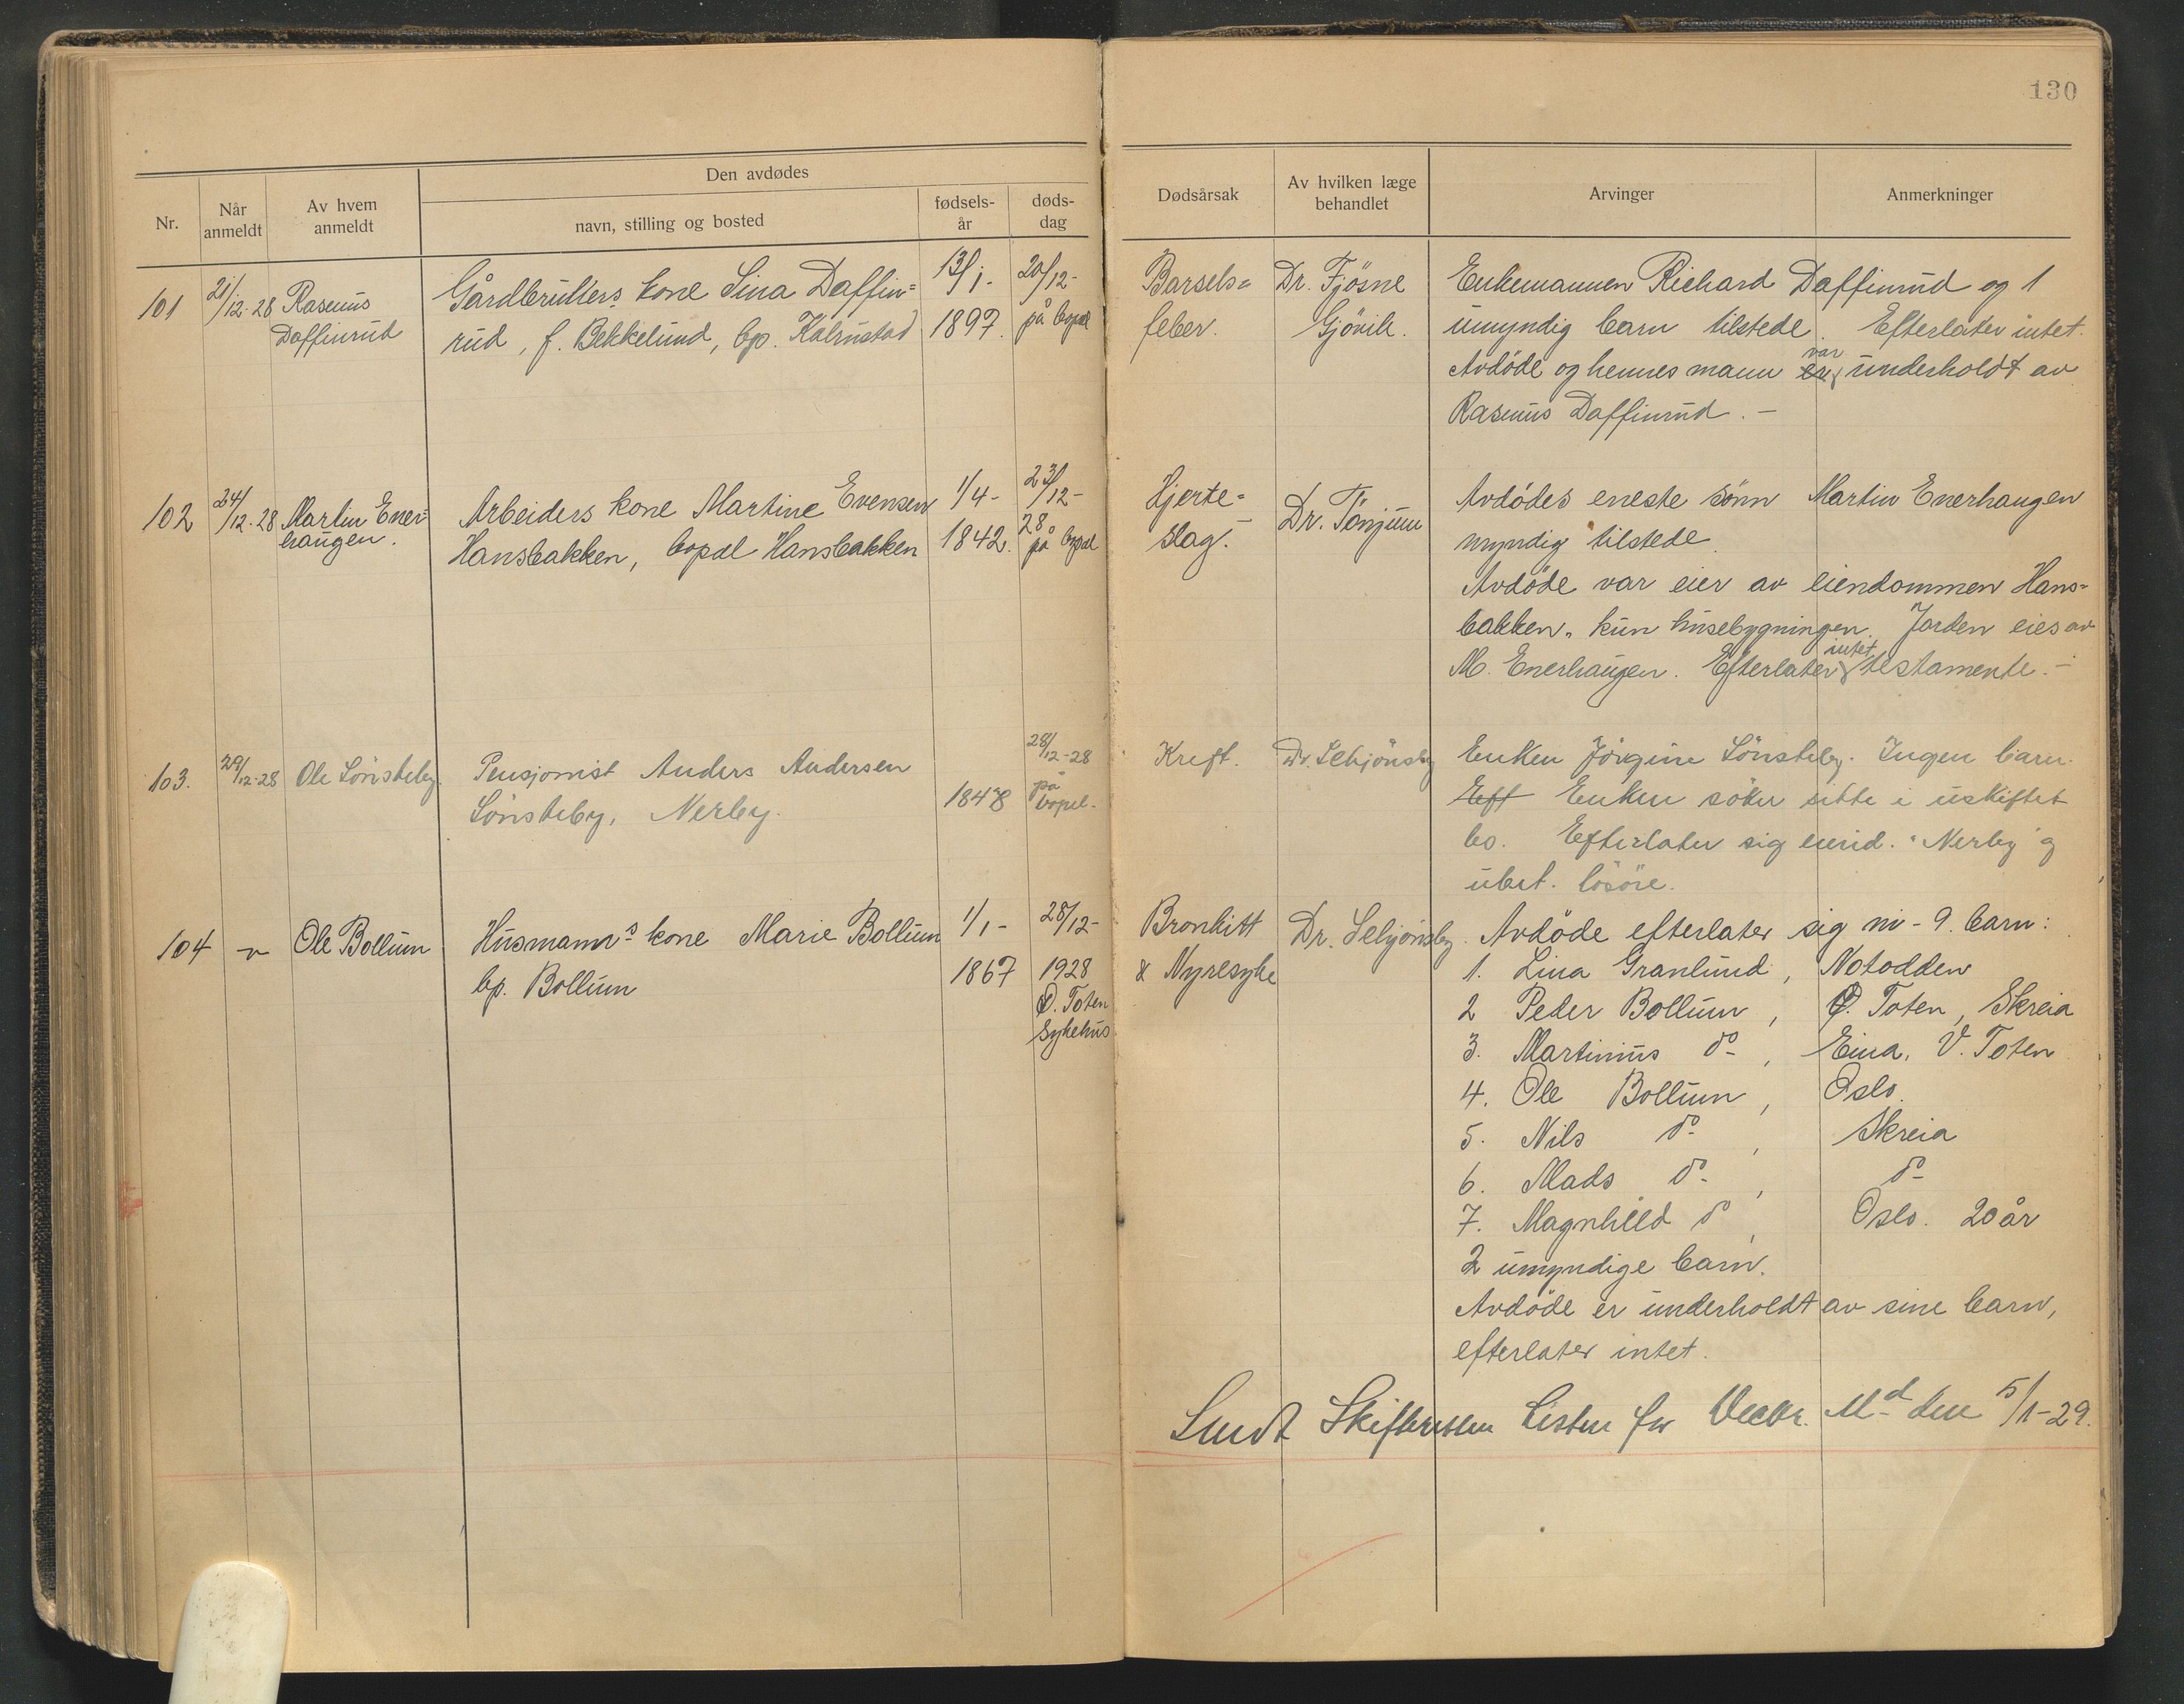 130
Den avdødes
Nr.
Når anmeldt
Av hvem anmeldt
navn, stilling og bosted
fødsels-år
døds-dag
Dødsårsak
Av hvilken læge behandlet
Arvinger
Anmerkninger
101
21/12-28
Rasmus
Daffinrud
Gårdbrukers kone Lina Daffin=
rud, f. Bekkelund, bp. Kalrustad
13/1-
1897.
20/12-
på bopæl
Barsels=
feber.
Dr. Fjösne
Gjövik.
Enkemannen Richard Daffinrud og 1
umyndig barn tilstede. Efterlater intet.
Avdöde og hennes mann er var underholdt av
Rasmus Daffinrud. -
102
24/12-28
Martin Ener=
haugen.
Arbeiders kone Martine Evensen
Hansbakken, bopæl Hansbakken
1/4-
1842.
23/12-
28
på bopæl
Hjerte=
slag.-
Dr. Tönjum
Avdödes eneste sönn Martin Enerhaugen
myndig tilstede.
Avdöde var eier av eiendommen Hans=
bakken, kun husebygningen. Jorden eies av
M. Enerhaugen. Efterlater intet testamente. -
103.
29/12-28
Ole Lönsteby.
Pensjonist Anders Andersen
Lönsteby, Nerby.
1848
28/12-28
på
bopel-
Kreft.
Dr. Sehjönsby
Enken Jörgine Lönsteby. Ingen barn.
Eeft Enken söker sitte i uskiftet
bo. Efterlater sig eiend. "Nerby" og
ubet. lösöre.
104
-"-
Ole Bollum
Husmanns kone Marie Bollum
bp. Bollum
1/1-
1867
28/12-
1928
Ø. Toten
sykehus
Bronkitt
& Nyresyke
Dr. Sehjönsby.
Avdöde efterlater sig ni - 9. barn:
1. Lina Granlund, Notodden
2 Peder Bollum, Ø. Toten, Skreia
3. Martinius do-, Eina, V. Toten
4. Ole Bollum, Oslo.
5. Nils do-, Skreia
6. Mads do-, do-
7. Magnhild do, Oslo. 20 år
2 umyndige barn.
Avdöde er underholdt av sine barn,
efterlater intet.
Sendt Skifteretten Listen for Decbr. Md- den 5/1-29.